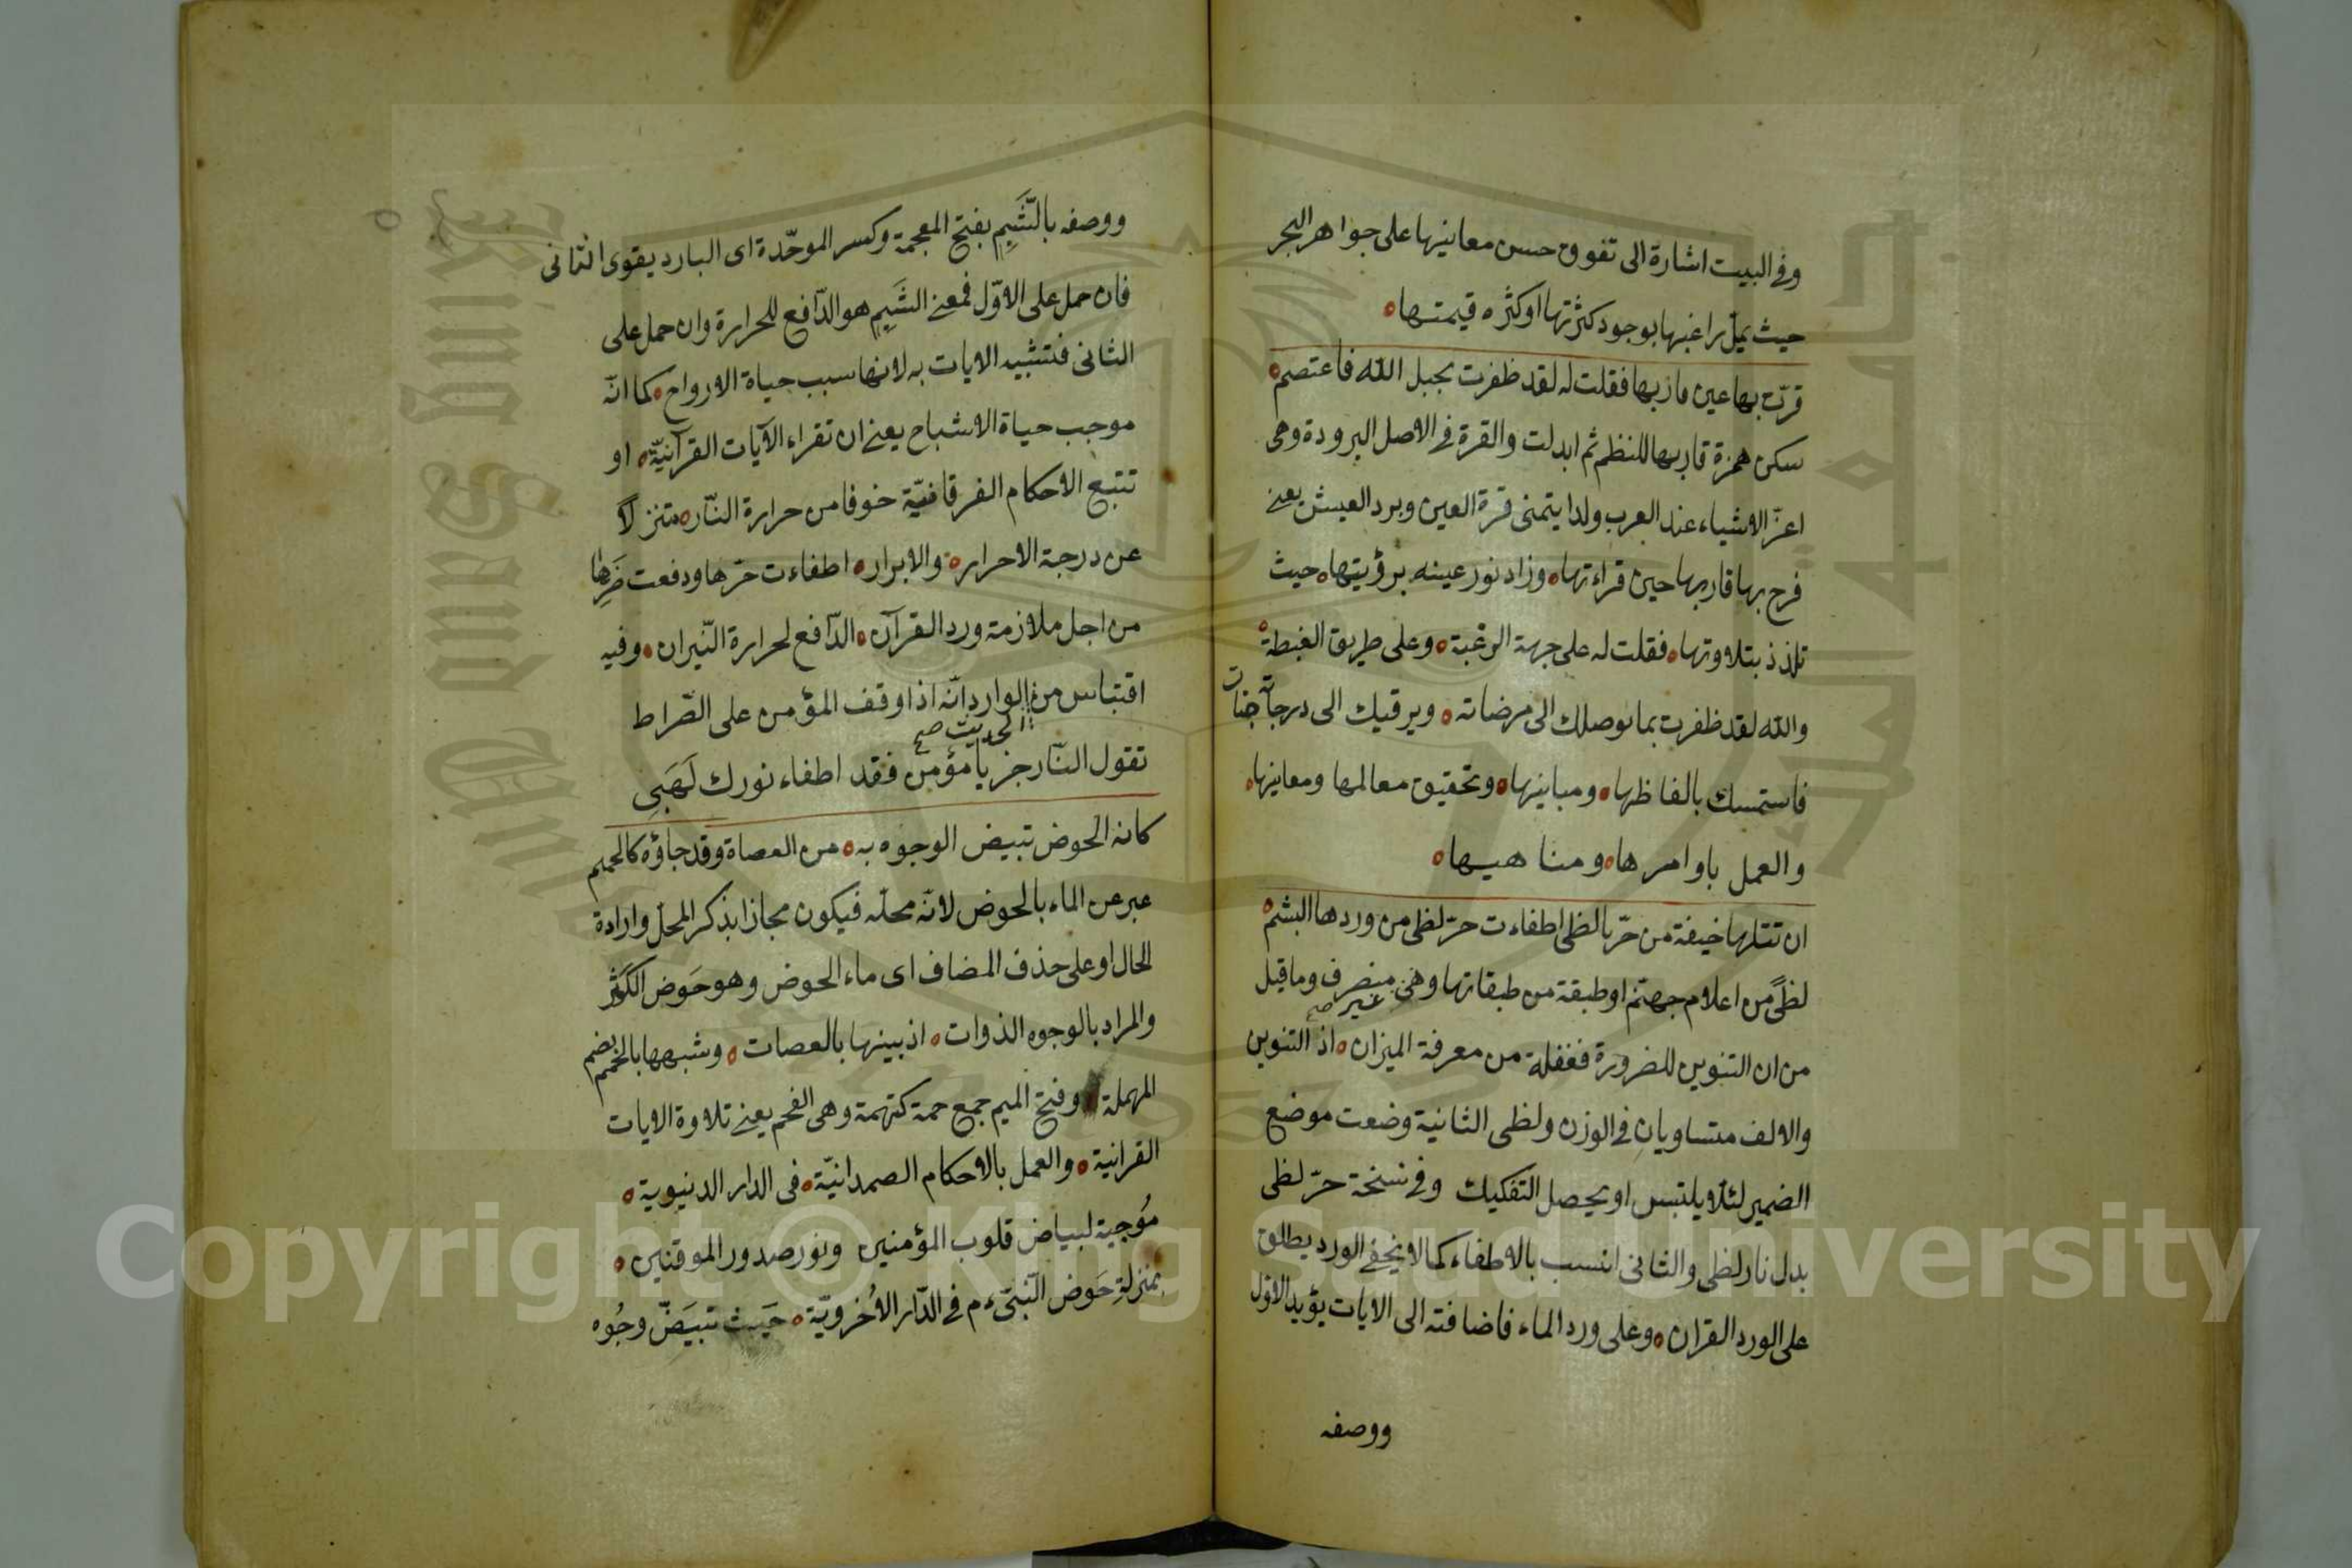 وفي البيت اشارة الى تفوق حسن معانيها على جواهر البحر
حيث يمل راغبها بوجود كثرتها او كثره قيمتها ه
قرت بها عين قاريها فقلت له لقد ظفرت بحبل الله فاعتصم ه
سكن همزة قاريها للنظم ثم ابدلت والقرة في الاصل البرودة وهى
اعز الاشياء عند العرب ولدا يتمنى قرة العين وبرد العيش يعنى
فرح بها قاريها حين قراءتها ه وزاد نور عينه برؤيتها ه حيث
تلذذ بتلاوتها ه فقلت له على جهة الرغبة ه وعلى طريق الغبطة ه
والله لقد ظفرت بما يوصلك الى مرضاته ه ويرقيك الى درجات جناته
فاستمسك بالفاظها ه ومبانيها ه وتحقيق معالمها ومعانيها ه
والعمل باوامرها ه ومناهيها ه
ان تتلها خيفة من حر نا لظى اطفاءت حر لظى من وردها الشبم ه
لظىً من اعلام جهنم او طبقة من طبقاتها وهى غير صح منصرف وما قيل
من ان التنوين للضرورة فغفلة من معرفة الميزان ه اذ التنوين
والالف متساويان في الوزن ولظى الثانية وضعت موضع
الضمير لئلا يلتبس او يحصل التفكيك وفي نسخة حرّ لظى
بدل نار لظى والثانى انسب بالاطفاء كما لا يخفى الورد يطلق
على الورد القران ه وعلى ورد الماء فاضافته الى الايات يؤيد الاول
ووصفه
ووصفه بالشَّبِم بفتح المعجمة وكسر الموحّدة اى البارد يقوى الثانى
فان حمل على الاوّل فمعنى الشَبِم هو الدّافع للحرارة وان حمل على
الثانى فتشبيه الايات به لانها سبب حياة الارواح ه كما انّه
موجب حياة الاشباح يعنى ان تقراء الآيات القرآنيّة ه او
تتبع الاحكام الفرقانيّة خوفا من حرارة النّار ه متنزلاً
عن درجة الاحرار ه والابرار ه اطفاءت حرّها ودفعت ضررها
من اجل ملازمة ورد القرآن ه الدّافع لحرارة النّيران ه وفيه
اقتباس من الحديث صح الوارد انّه اذا وقف المؤمن على الصّراط
تقول النّار جز يا مؤمن فقد اطفاء نورك لَهَبِي
كانه الحوض تبيض الوجوه به ه من العصاة وقد جاؤه كالحمم
عبر عن الماء بالحوض لانّه محلّه فيكون مجازا بذكر المحلّ وارادة
الحال او على حذف المضاف اى ماء الحوض وهو حَوض الكَوثر
والمراد بالوجوه الذوات ه اذ بينها بالعصات ه وشبهها بالحمم بضم
المهملة وفتح الميم جمع حمة كتهمة وهى الفحم يعنى تلاوة الايات
القرانية ه والعمل بالاحكام الصمدانيّة ه فى الدار الدنيوية ه
مُوجبة لبياض قلوب المؤمنين ونور صدور الموقنين ه
بمنزلةِ حَوض النّبىّ ء م في الدّار الاُخرويّة ه حَيث تبيَضّ وجُوه
Copyright © King Saud University
King Saud University
جامعة الملك سعود
1957